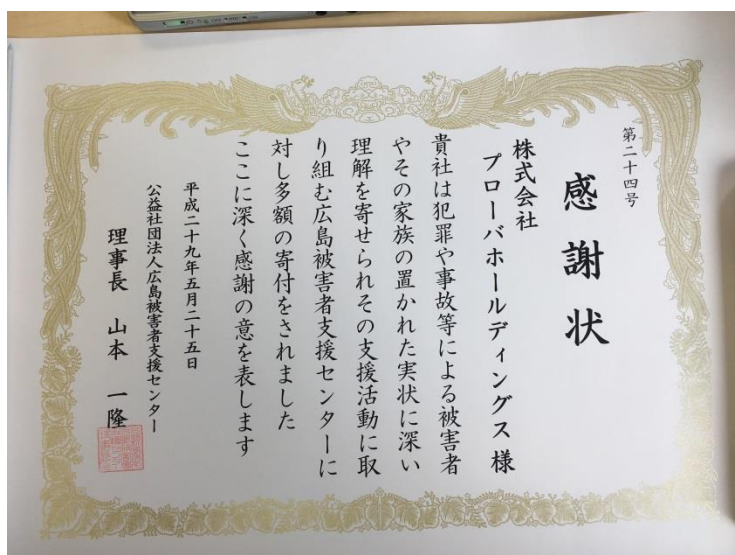 第二十四号
感謝状
株式会社
プローバホールディングス様
貴社は犯罪や事故等による被害者
やその家族の置かれた実状に深い
理解を寄せられその支援活動に取
り組む広島被害者支援センターに
対し多額の寄付をされました
ここに深く感謝の意を表します
平成二十九年五月二十五日
公益社団法人広島被害者支援センター
理事長 山本 一隆